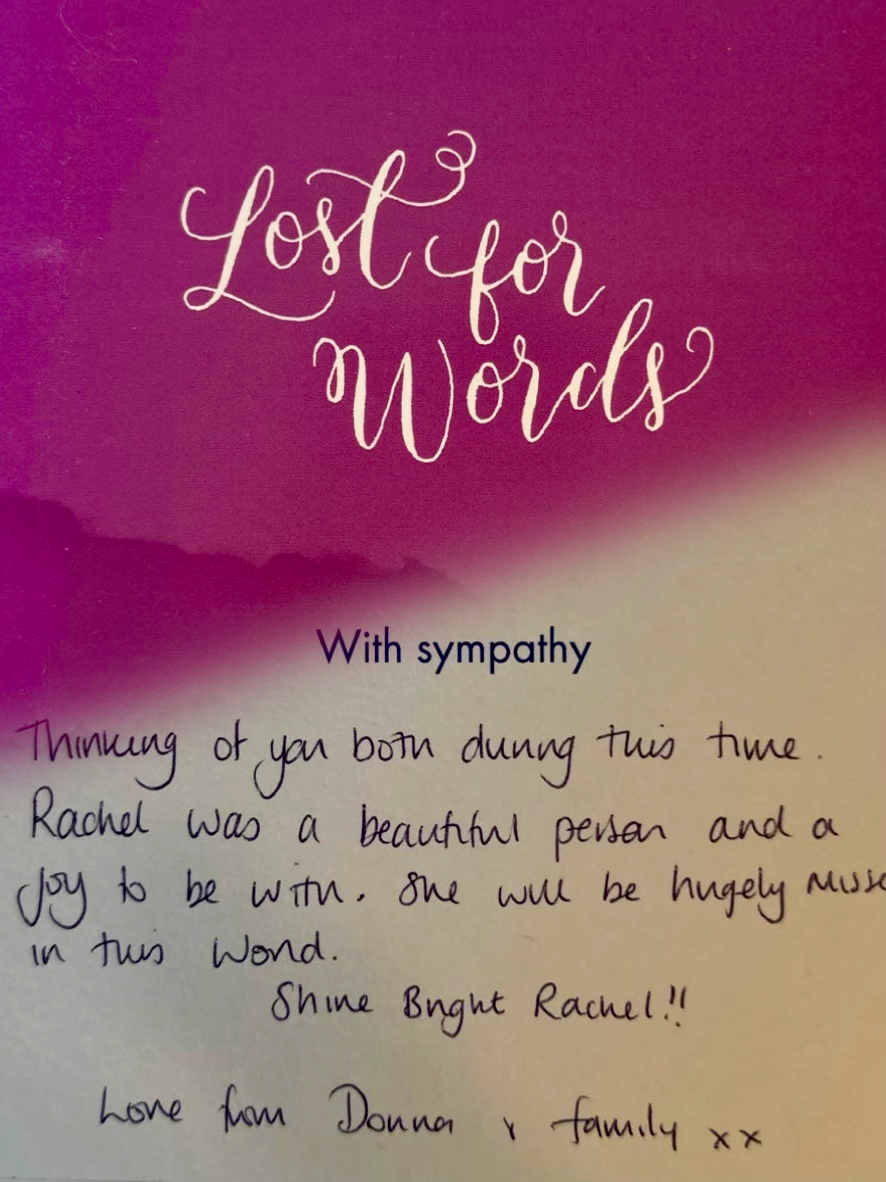 Lost for
Words
With sympathy
Thinking of you both during this time.
Rachel was a beautiful person and a
joy to be with. She will be hugely misse
in this World.
Shine Bright Rachel!!
Love from Donna & family xx